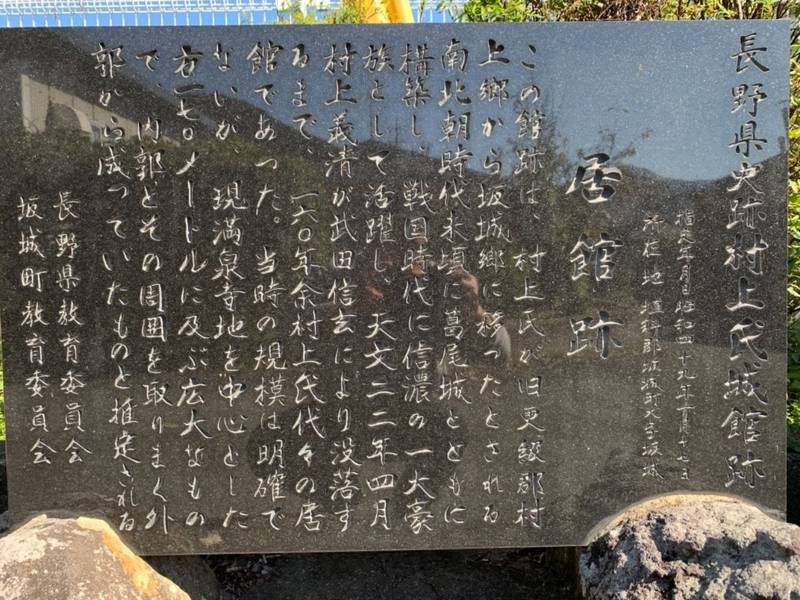 長野県史跡村上氏城館跡
指定年月日昭和四十九年一月十七日
所在地 埴科郡坂城町大字坂城
居館跡
この館跡は、村上氏が旧更級郡村
上郷から坂城郷に移ったとされる
南北朝時代末頃に葛尾城とともに
構築し、戦国時代に信濃の一大豪
族として活躍し、天文二二年四月
村上義清が武田信玄により没落す
るまで、一六〇年余村上氏代々の居
館であった。当時の規模は明確で
ないが、現満泉寺地を中心とした
方一七〇メートルに及ぶ広大なもの
で、内郭とその周囲を取りまく外
郭から成っていたものと推定される
長野県教育委員会
坂城町教育委員会